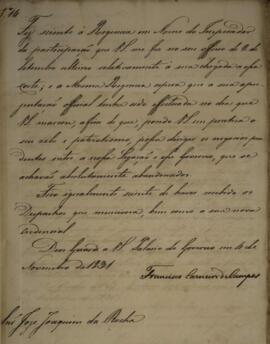 Fiz sciente à Regencia em Nome do Imperador
da participação que VS. me fez no seu officio de 2 de
Setembro ultimo relativamente à sua chegada a essa
Corte; e a Mesma Regencia espera que a sua apre-
sentação official tenha sido effectuada no dia que
VS. marcou, afim de que, pondo VS. em pratica o
seu zelo e patriotismo, possa dirigir os negocios pen-
dentes entre a nossa Legação e esse Governo, que se
achavão absolutamente abandonados.
Fico igualmente sciente de haver recebido os
Despachos que menciona, bem como a sua nova
credencial.
Deos Guarde a VS. Palacio do Governo em de
Novembro de 1831
Francisco Carneiro de Campos
Snr. Joze Joaquim da Rocha